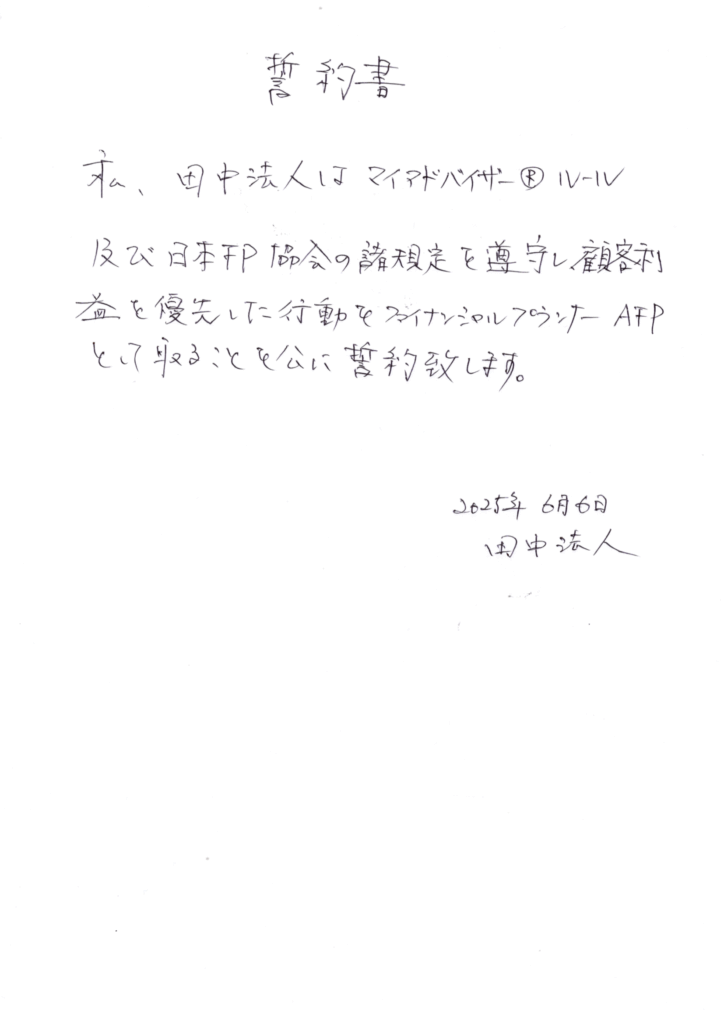 誓約書
私、田中法人はマイアドバイザー®ルール
及び日本FP協会の諸規定を遵守し、顧客利
益を優先した行動をファイナンシャルプランナー AFP
として取ることを公に誓約致します。
2025年 6月6日
田中法人